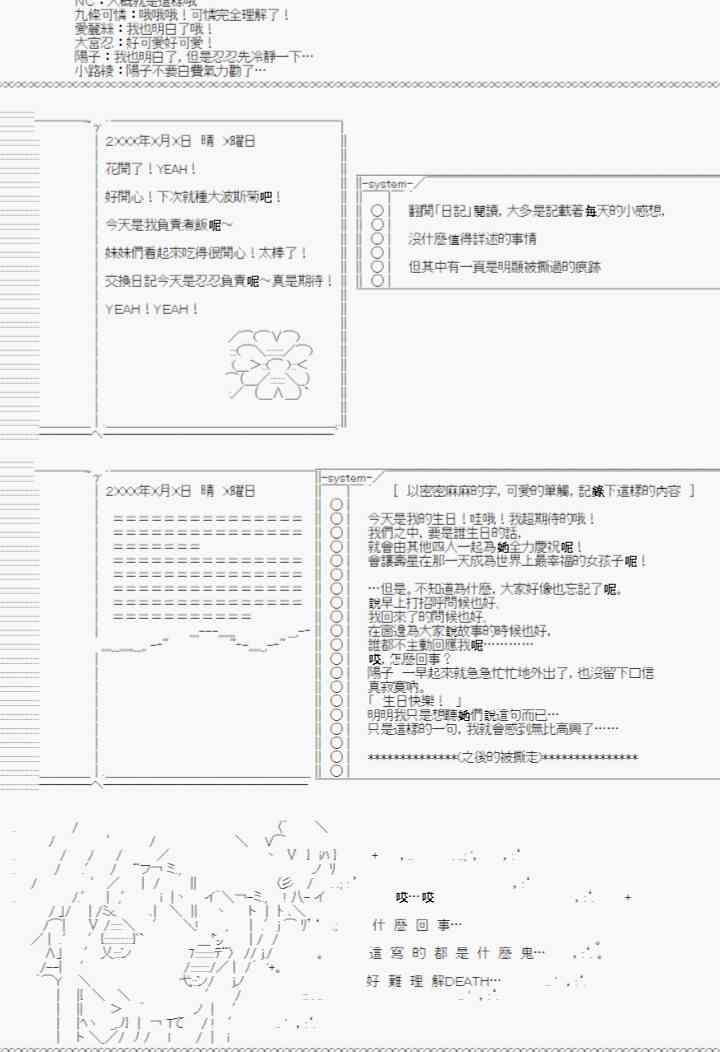 NC：大概就是這樣哦
九條可憐：哦哦哦！可憐完全理解了！
愛麗絲：我也明白了哦！
大宮忍：好可愛好可愛！
陽子：我也明白了，但是忍忍先冷靜一下…
小路綾：陽子不要白費氣力勸了…
2XXX年X月X日　晴　X曜日
花開了！YEAH！
好開心！下次就種大波斯菊吧！
今天是我負責煮飯呢～
妹妹們看起來吃得很開心！太棒了！
交換日記今天是忍忍負責呢～真是期待！
YEAH！YEAH！
-system-
翻開「日記」閱讀，大多是記載著每天的小感想，
沒什麼值得詳述的事情
但其中有一頁是明顯被撕過的痕跡
2XXX年X月X日　晴　X曜日
-system-
[ 以密密麻麻的字，可愛的筆觸，記錄下這樣的內容 ]
今天是我的生日！哇哦！我超期待的哦！
我們之中，要是誰生日的話，
就會由其他四人一起為她全力慶祝呢！
會讓壽星在那一天成為世界上最幸福的女孩子呢！
…但是。不知道為什麼，大家好像也忘記了呢。
說早上打招呼問候也好、
我回來了的問候也好、
在窗邊為大家說故事的時候也好，
誰都不主動回應我呢…………
咬，怎麼回事？
陽子 一早起來就急急忙忙地外出了，也沒留下口信
真寂寞吶。
「 生日快樂！ 」
明明我只是想聽她們說這句而已…
只是這樣的一句，我就會感到無比高興了……
**************(之後的被撕走)***************
咬…咬
什麼回事…
這寫的都是什麼鬼…
好難理解DEATH…